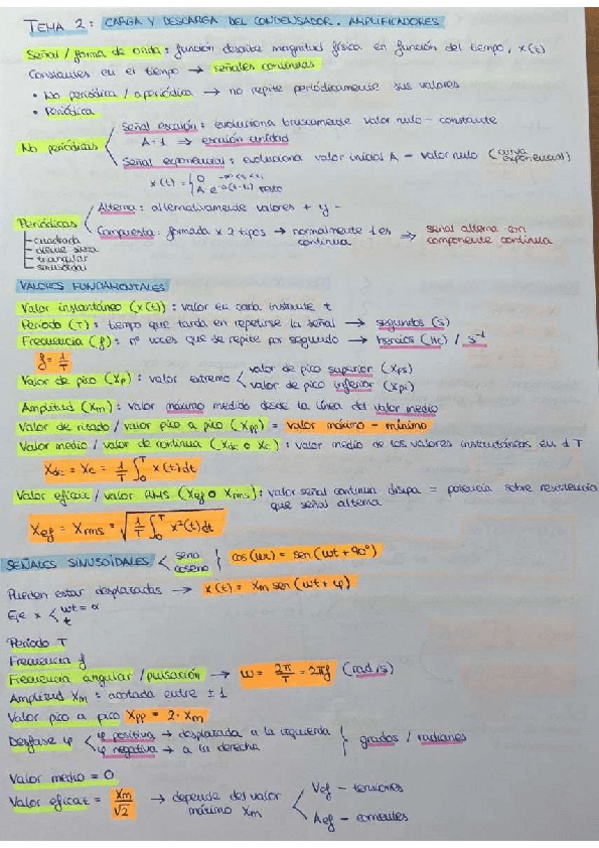 TEMA 2: CARGA Y DESCARGA DEL CONDENSADOR. AMPLIFICADORES
Señal / forma de onda: función describe magnitud física en función del tiempo, x(t)
Constantes en el tiempo → señales continuas
• No periódica / aperiódica → no repite periódicamente sus valores
• Periódica
No periódicas
Señal escalón: evoluciona bruscamente valor nulo - constante
A=1 ⇒ escalón unidad
Señal exponencial: evoluciona valor inicial A - valor nulo (curva exponencial)
x(t) = { 0
A e resto
Periódicas
Alterna: alternativamente valores + y -
- cuadrada
- diente sierra
- triangular
- sinusoidal
Compuesta: formada x 2 tipos → normalmente 1 es continua ⇒ señal alterna con componente continua
VALORES FUNDAMENTALES
Valor instantáneo (x(t)): valor en cada instante t
Período (T): tiempo que tarda en repetirse la señal → segundos (s)
Frecuencia (f): nº veces que se repite por segundo → hercios (Hz) / s⁻¹
f = 1/T
Valor de pico (Xp): valor extremo < valor de pico superior (Xps)
valor de pico inferior (Xpi)
Amplitud (Xm): valor máximo medido desde la línea del valor medio
Valor de rizado / valor pico a pico (Xpp) = valor máximo - mínimo
Valor medio / valor de continua (Xdc o Xc): valor medio de los valores instantáneos en 1 T
Xdc = Xc = 1/T ∫₀ᵀ x(t)dt
Valor eficaz / valor RMS (Xef o Xrms): valor señal continua disipa = potencia sobre resistencia
que señal alterna
Xef = Xrms = √(1/T ∫₀ᵀ x²(t)dt)
SEÑALES SINUSOIDALES < seno
coseno } cos(ωt) = sen(ωt + 90°)
Pueden estar desplazadas → x(t) = Xm sen(ωt + φ)
Eje x < ωt = α
t
Período T
Frecuencia f
Frecuencia angular / pulsación → ω = 2π/T = 2πf (rad/s)
Amplitud Xm: acotada entre ± 1
Valor pico a pico Xpp = 2 · Xm
Desfase φ < φ positiva → desplazada a la izquierda
φ negativa → a la derecha } grados / radianes
Valor medio = 0
Valor eficaz = Xm/√2 → depende del valor máximo Xm < Vef - tensiones
Aef - corrientes